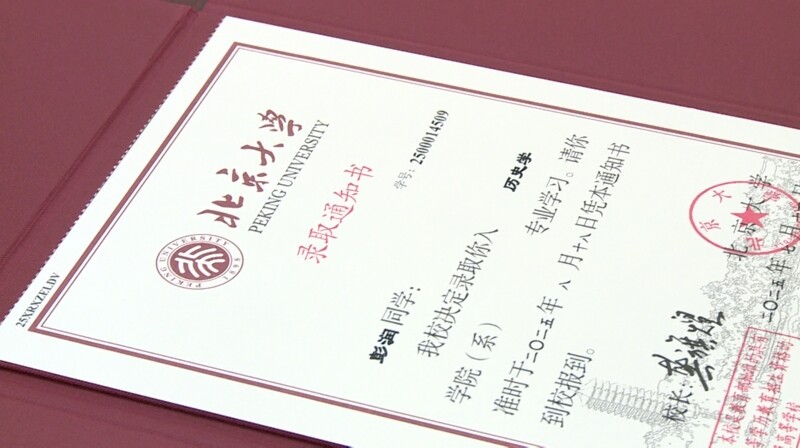 北京大学
PEKING UNIVERSITY
录取通知书
学号：2500014509
彭润同学：
我校决定录取你入
历史学
学院（系）
专业学习。请你
准时于二〇二五年八月十八日凭本通知书
到校报到。
校长：
北京大学
二〇二五年七月
25XRXZELDV
PEKING UNIVERSITY 1898